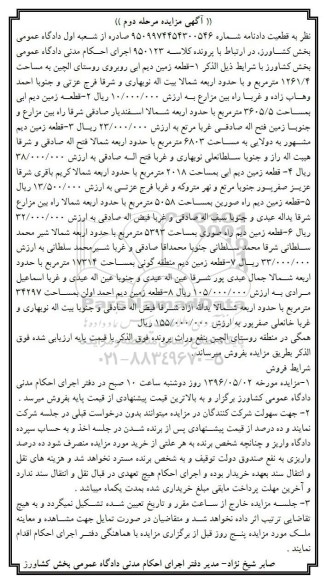 (( آگهی مزایده مرحله دوم ))
نظر به قطعیت دادنامه شماره ۹۵۰۹۹۷۴۴۵۴۳۰۰۵۴۶ صادره از شعبه اول دادگاه عمومی
بخش کشاورز، در ارتباط با پرونده کلاسه ۹۵۰۱۲۳ اجرای احکام مدنی دادگاه عمومی
بخش کشاورز با شرایط ذیل الذکر ۱-قطعه زمین دیم ابی روبروی روستای الچین به مساحت
۱۲۶۱/۴ مترمربع و با حدود اربعه شمالا بیت اله نوبهاری و شرقا فرج عزتی و جنوبا احمد
وهاب زاده و غربا راه بین مزارع به ارزش ۱۰/۰۰۰/۰۰۰ ریال ۲-قطعه زمین دیم ابی
بمساحت ۳۶۰۵/۵ مترمربع با حدود اربعه شمالا اسفندیار صادقی شرقا راه بین مزارع و
جنوبا زمین فتح اله صادقی غربا مرتع به ارزش ۲۳/۰۰۰/۰۰۰ ریال ۳-قطعه زمین دیم
مشهور به دولابی به مساحت ۶۸۰۳ مترمربع با حدود اربعه شمالا فتح اله صادقی و شرقا
هیبت اله راز و جنوبا سلطانعلی نوبهاری و غربا فتح اله صادقی به ارزش ۳۸/۰۰۰/۰۰۰
ریال ۴- قطعه زمین دیم ابی بمساحت ۲۰۱۸ مترمربع با حدود اربعه شمالا کریم باقری شرقا
عزیز صفرپور جنوبا مرتع و نهر متروکه و غربا فرج عزتی به ارزش ۱۳/۵۰۰/۰۰۰ ریال
۵-قطعه زمین دیم راه صورین بمساحت ۵۰۵۸ مترمربع با حدود اربعه شمالا راه بین مزارع
شرقا یداله عبدی و جنوبا سیف اله صادقی و غربا فیض اله صادقی به ارزش ۳۲/۰۰۰/۰۰۰
ریال ۶-قطعه زمین دیم راه صورین بمساحت ۵۳۹۳ مترمربع با حدود اربعه شمالا شیر محمد
سلطانی شرقا محمد سلطانی جنوبا محمدآقا صادقی و غربا شیرمحمد سلطانی به ارزش
۳۳/۰۰۰/۰۰۰ ریال ۷-قطعه زمین دیم منطقه گونی بمساحت ۱۷۳۱۴ مترمربع با حدود
اربعه شمالا جمال عبدی پور شرقا عین اله عبدی و جنوبا عین اله عبدی و غربا اسماعیل
مرادی به ارزش ۱۰۵/۰۰۰/۰۰۰ ریال ۸-قطعه زمین دیم احمد اولن بمساحت ۳۴۲۹۷
مترمربع با حدود اربعه شمالا یداله آزاد شرقا فیض اله صادقی و جنوبا بیت اله نوبهاری و
غربا خانعلی صفرپور به ارزش ۱۵۵/۰۰۰/۰۰۰ ریال
همگی در منطقه روستای الچین بنفع وراث پرونده فوق الذکر با قیمت پایه ارزیابی شده فوق
الذکر بطریق مزایده بفروش میرساند
شرایط فروش
۱-مزایده مورخه ۱۳۹۶/۰۵/۰۲ روز دوشنبه ساعت ۱۰ صبح در دفتر اجرای احکام مدنی
دادگاه عمومی کشاورز برگزار و به بالاترین قیمت پیشنهادی از قیمت پایه بفروش میرسد .
۲- جهت سهولت شرکت کنندگان در مزایده میتوانند بدون درخواست قبلی در جلسه شرکت
نمایند و ده درصد از قیمت پیشنهادی پس از برنده شدن در جلسه اخذ و به حساب سپرده
دادگاه واریز و چنانچه شخص برنده به هر علتی از خرید مورد مزایده منصرف شود ده درصد
واریزی به نفع صندوق دولت توقیف و به شخص برنده مسترد نخواهد شد و هزینه های نقل
و انتقال سند بعهده خریدار بوده و اجرای احکام هیچ تعهدی در قبال نقل و انتقال سند ندارد
و آخرین مهلت پرداخت مابقی مبلغ خریداری شده بمدت یکماه میباشد .
۳- جلسه مزایده خارج از ساعت مقرر و تاریخ تعیین شده تشکیل نمیگردد و به هیچ
تقاضایی ترتیب اثر داده نخواهد شد و متقاضیان در صورت تمایل جهت مشاهده و معاینه
ملک مورد مزایده پنج روز قبل از برگزاری مزایده با هماهنگی دفتر اجرای احکام اقدام
نمایند .
صابر شیخ نژاد- مدیر دفتر اجرای احکام مدنی دادگاه عمومی بخش کشاورز
۰۲۱-۸۸۳۴۹۶۷۰-۵